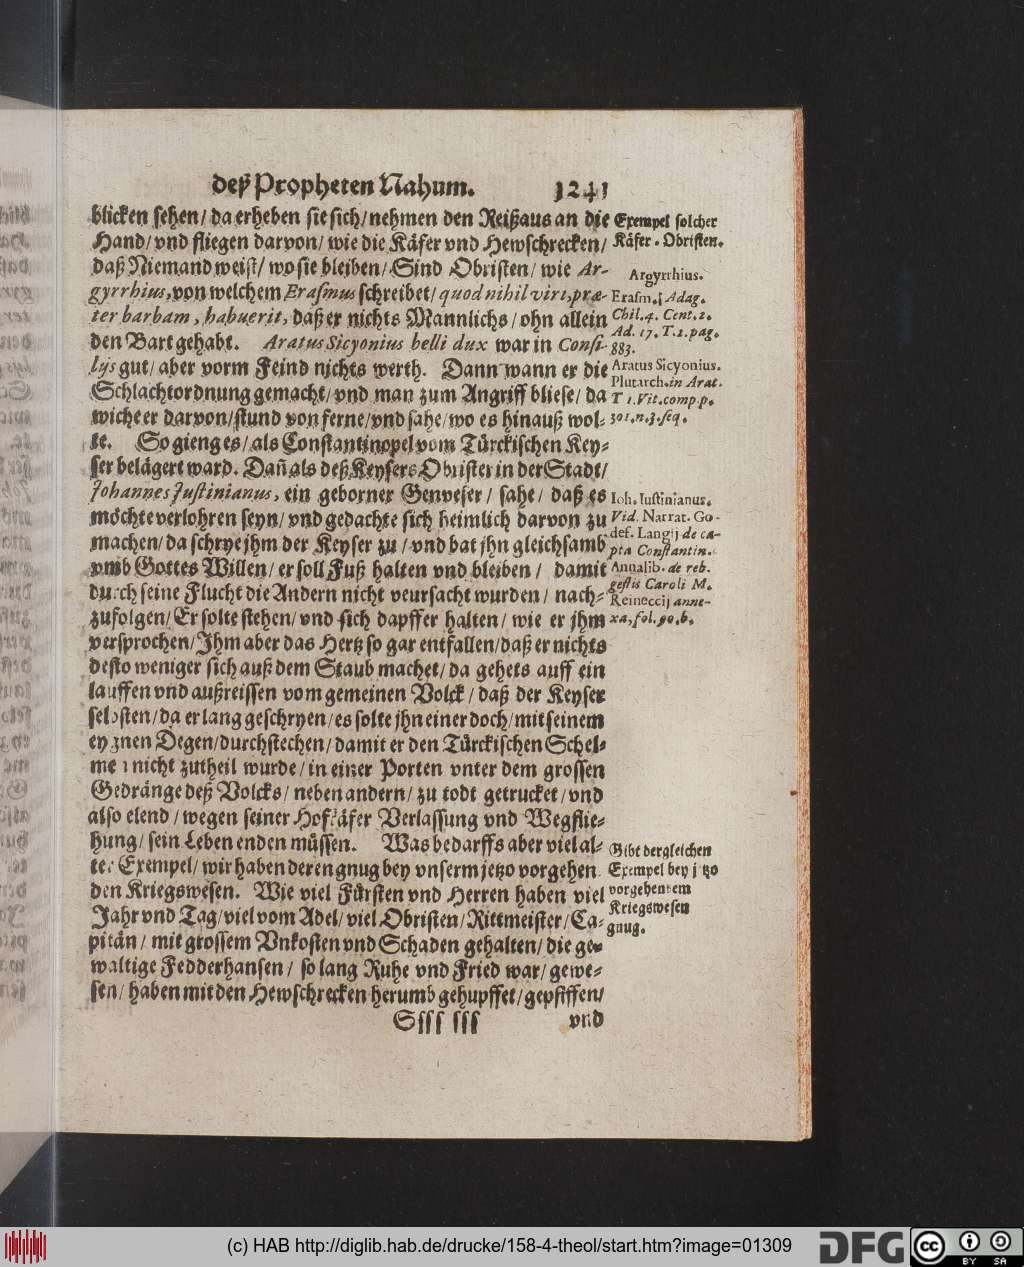 deß Propheten Nahum. 1241
blicken sehen/ da erheben sie sich/ nehmen den Reißaus an die
Hand/ vnd fliegen darvon/ wie die Käfer vnd Hewschrecken/
daß Niemand weist/ wo sie bleiben/ Sind Obristen/ wie Ar-
gyrrhius, von welchem Erasmus schreibet/ quod nihil viri, præ-
ter barbam, habuerit, daß er nichts Mannlichs/ ohn allein
den Bart gehabt. Aratus Sicyonius belli dux war in Consi-
lijs gut/ aber vorm Feind nichts werth. Dann wann er die
Schlachtordnung gemacht/ vnd man zum Angriff bliese/ da
wiche er darvon/ stund von ferne/ vnd sahe/ wo es hinauß wol-
te. So gieng es/ als Constantinopel vom Türckischen Key-
ser belägert ward. Dañ als deß Keysers Obrister in der Stadt/
Johannes Justinianus, ein geborner Genveser/ sahe/ daß es
möchte verlohren seyn/ vnd gedachte sich heimlich darvon zu
machen/ da schrye jhm der Keyser zu/ vnd bat jhn gleichsamb
vmb Gottes Willen/ er soll Fuß halten vnd bleiben/ damit
durch seine Flucht die Andern nicht veursacht wurden/ nach-
zufolgen/ Er solte stehen/ vnd sich dapffer halten/ wie er jhm
versprochen/ Jhm aber das Hertz so gar entfallen/ daß er nichts
desto weniger sich auß dem Staub machet/ da gehets auff ein
lauffen vnd außreissen vom gemeinen Volck/ daß der Keyser
selbsten/ da er lang geschryen/ es solte jhn einer doch/ mit seinem
eygnen Degen/ durchstechen/ damit er den Türckischen Schel-
men nicht zutheil wurde/ in einer Porten vnter dem grossen
Gedränge deß Volcks/ neben andern/ zu todt getrucket/ vnd
also elend/ wegen seiner Hofkäfer Verlassung vnd Wegflie-
hung/ sein Leben enden müssen. Was bedarffs aber viel al-
ter Exempel/ wir haben deren gnug bey vnserm jetzo vorgehen
den Kriegswesen. Wie viel Fürsten vnd Herren haben viel
Jahr vnd Tag/ viel vom Adel/ viel Obristen/ Rittmeister/ Ca-
pitän/ mit grossem Vnkosten vnd Schaden gehalten/ die ge-
waltige Fedderhansen/ so lang Ruhe vnd Fried war/ gewe-
sen/ haben mit den Hewschrecken herumb gehupffet/ gepfiffen/
Ssss sss vnd
Exempel solcher
Käfer-Obristen.
Argyrrhius.
Erasm. Adag.
Chil. 4. Cent. 2.
Ad. 17. T. 2. pag.
883.
Aratus Sicyonius.
Plutarch. in Arat.
T 1. Vit. comp. p.
301. n. 3. seq.
Ioh. Iustinianus.
Vid. Narrat. Go-
def. Langij de ca-
pta Constantin.
Annalib. de reb.
gestis Caroli M.
Reineccij anne-
xa, fol. 90. b.
Gibt dergleichen
Exempel bey jetzo
vorgehendem
Kriegswesen
gnug.
(c) HAB http://diglib.hab.de/drucke/158-4-theol/start.htm?image=01309
DFG
cc
BY SA